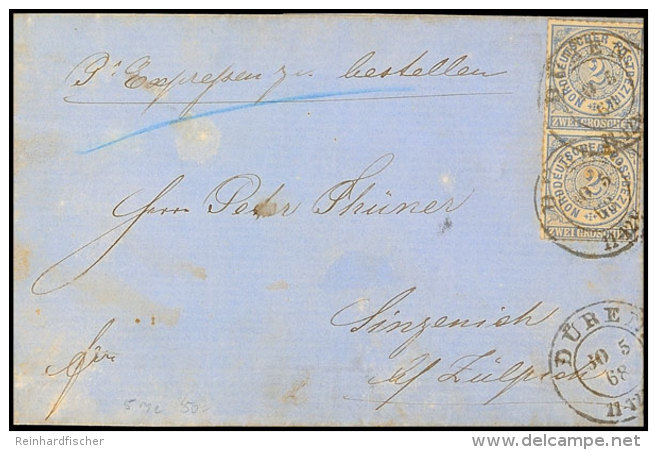 Pr Expressen zu bestellen
NORDDEUTSCHER POSTBEZIRK
2
ZWEI GROSCHEN
NORDDEUTSCHER POSTBEZIRK
2
ZWEI GROSCHEN
Herrn Peter Thüner
Sinzenich
bei Zülpich
frei
DÜREN
30 5
68
11-12
Reinhardfischer
delcampe.net